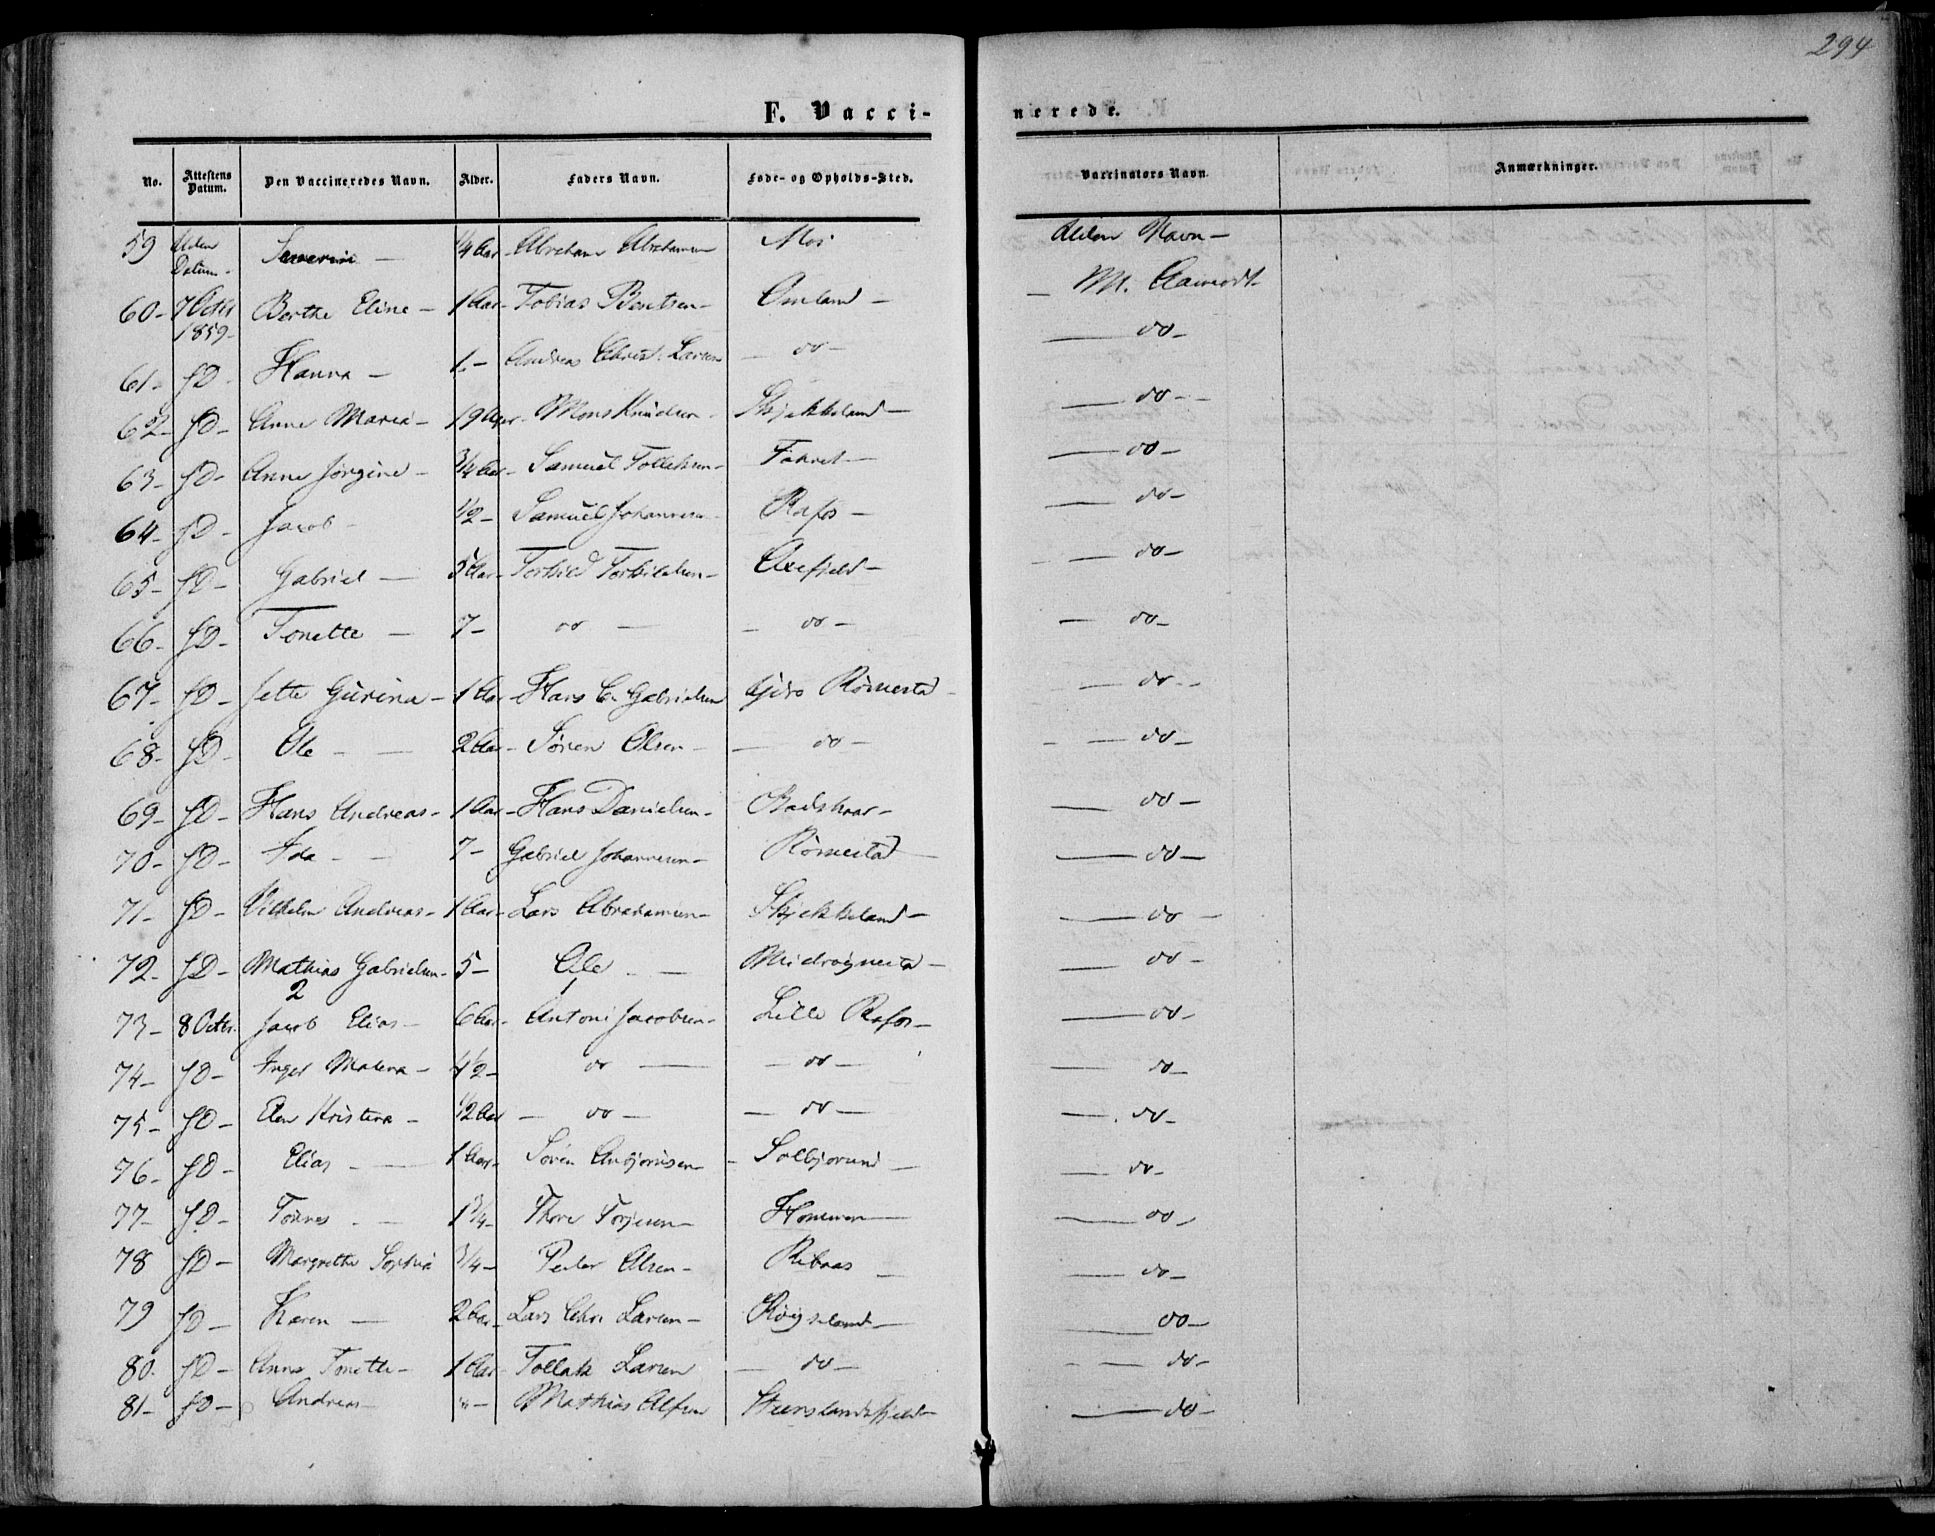 294
F. Vaccinerede.
No. Attestens Datum. Den Vaccineredes Navn. Alder. Faders Navn. Føde- og Opholds-Sted. Vaccinators Navn. Anmærkninger.
59 Uden Datum- Severine - 1/4 Aar- Abraham Abrahamsen Moi Uden Navn-
60- 7 Octbr 1859- Berthe Eline - 1 Aar- Tobias Berntsen- Omland - - M.
61- sD- Hanna - 1- Andreas Christ. Larsen - do - - do-
62- sD- Anne Marie- Mons Knudsen- Skjekkeland- - do -
63- sD- Anne Jørgine - 3/4 Aar- Samuel Tollaksen- - do -
64- sD- Jacob - 1/2- Samuel Johannesen Rafos - - do-
65- sD- Gabriel - 5 Aar- Torkild Torkildsen- - do -
66- sD- Tonette - 7- do - - do - - do-
67- sD- Jette Gurina- 1 Aar- Hans C. Gabrielsen Rømestad - do -
68- sD- Ole - 2 Aar- Søren Olsen - - do - - do -
69- sD- Hans Andreas- 1 Aar- Hans Danielsen- - do -
70- sD- Ida - 7- Gabriel Johannesen- Rømestad - do -
71- sD- Vilhelm Andreas- 1 Aar- Lars Abrahamsen- Skjekkeland- - do -
72- sD- Mathias Gabrielsen- 5- Ole - - do -
2 1
73- 8 Octbr. Jacob Elias- 6 Aar- Antoni Jacobsen- Lille Rafos- - do-
74- sD- Inger Malena - 4 1/2- do - - do - - do-
75- sD- Elen Kristina - 1/2 Aar - do - - do - - do-
76- sD- Elias - 1 Aar- Søren Asbjørnsen- - do-
77- sD- Tønnes - 1 3/4- Thore Torjesen- - do -
78 sD- Margrethe Sophie 3/4- Peder Olsen- - do-
79 sD- Karen - 2 Aar- Lars Chr. Larsen- Røigseland- - do-
80. sD- Anne Tonette- 1 Aar- Tollak Larsen - do - - do-
81- sD- Andreas- "- Mathias - do-